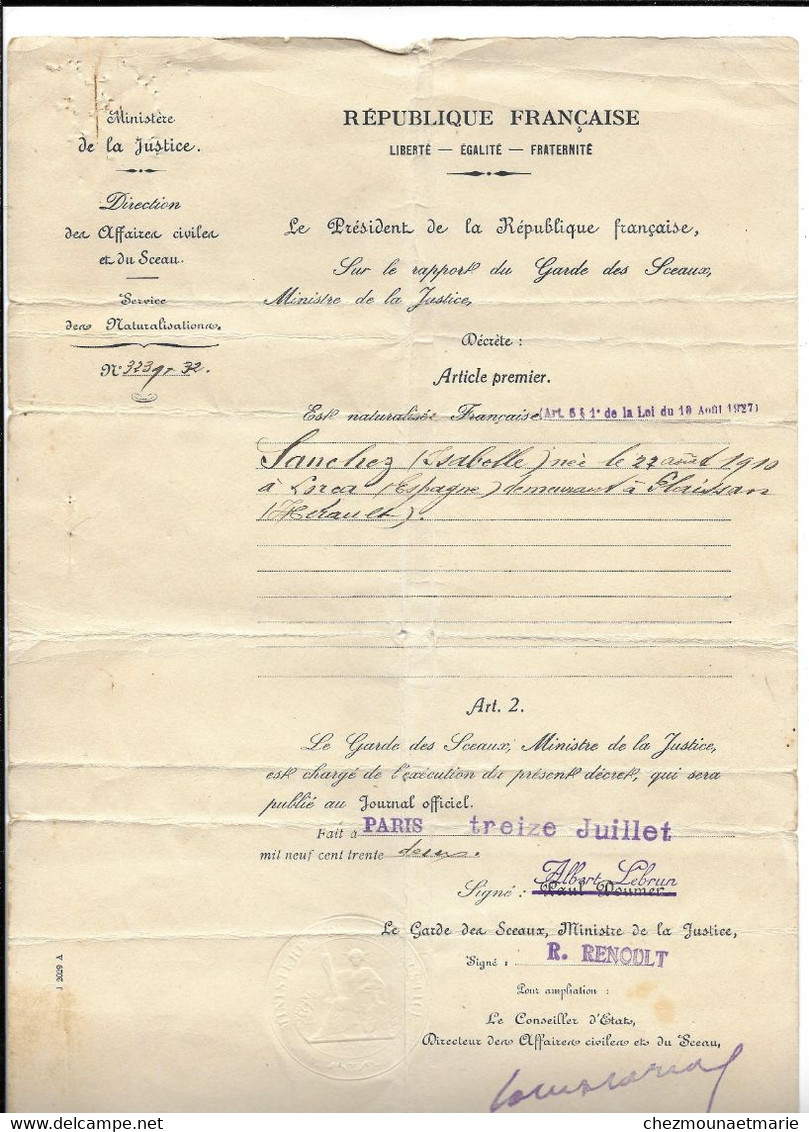 Ministère
de la Justice.
Direction
des Affaires civiles
et du Sceau.
Service
des Naturalisations.
N° 3239-32.
RÉPUBLIQUE FRANÇAISE
LIBERTÉ — ÉGALITÉ — FRATERNITÉ
Le Président de la République française,
Sur le rapport du Garde des Sceaux,
Ministre de la Justice,
Décrète :
Article premier.
Est naturalisée Française (Art. 6 § 1° de la Loi du 10 Août 1927)
Sanchez (Isabelle) née le 22 août 1910
à Lorca (Espagne) demeurant à Plaissan
(Hérault).
Art. 2.
Le Garde des Sceaux, Ministre de la Justice,
est chargé de l'exécution du présent décret, qui sera
publié au Journal officiel.
Fait à PARIS treize Juillet
mil neuf cent trente deux.
Albert Lebrun
Signé : Paul Doumer
Le Garde des Sceaux, Ministre de la Justice,
Signé : R. RENOULT
Pour ampliation :
Le Conseiller d'État,
Directeur des Affaires civiles et du Sceau,
J 2029 A
chezmounaetmarie